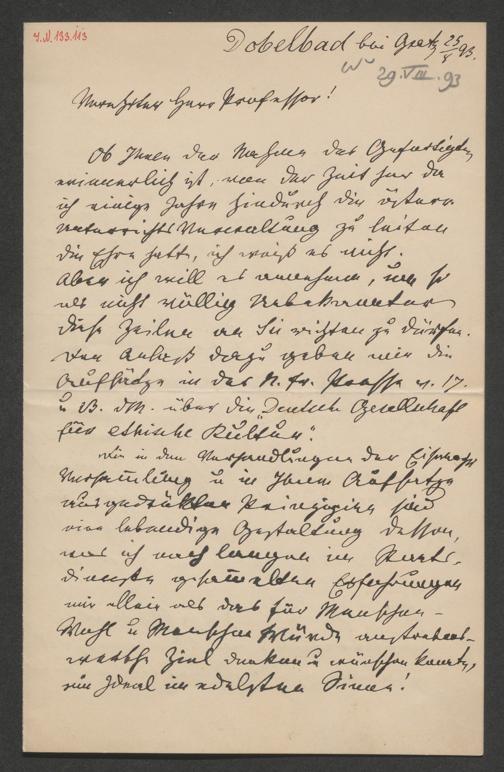 I.N. 133.113
Dobelbad bei Gratz 25/8 93.
29.VIII.93
Verehrter Herr Professor!
Ob Ihnen der Nahme des Gefertigten
erinnerlich ist, von der Zeit her da
ich einige Jahre hindurch die österr
Unterrichts Verwaltung zu leiten
die Ehre hatte, ich weiß es nicht.
Aber ich will es annehmen, um so
als nicht völlig Unbekannter
diese Zeilen an Sie richten zu dürfen.
Den Anlaß dazu geben mir die
Aufsätze in der N. fr. Presse v. 17.
u 23. dM. über die "Deutsche Gesellschaft
für ethische Kultur".
Die in den Verhandlungen der Eisenacher
Versammlung u in Ihrem Aufsatze
ausgedrückten Prinzipien sind
eine lebendige Gestaltung dessen,
was ich nach langen im Staats-
dienste gesammelten Erfahrungen
mir allein als das für Menschen-
Wohl u Menschen Würde anstrebens-
werthe Ziel denken u wünschen konnte,
ein Ideal im edelsten Sinne!